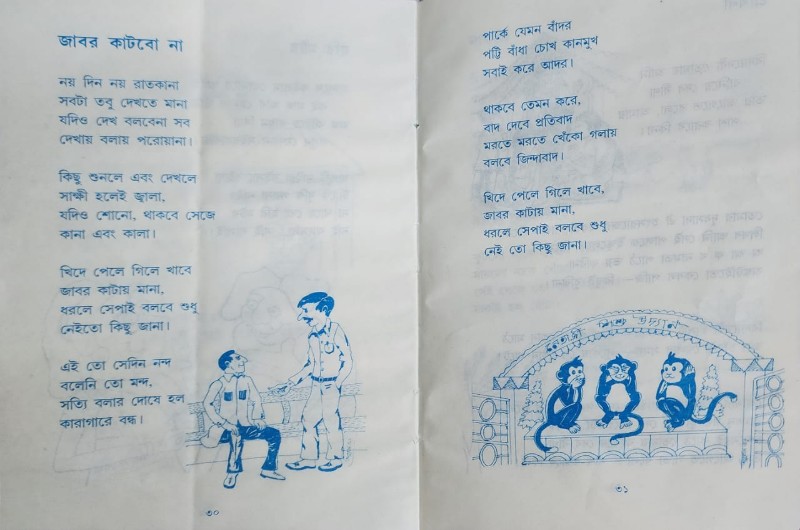 জাবর কাটবো না
নয় দিন নয় রাতকানা
সবটা তবু দেখতে মানা
যদিও দেখ বলবেনা সব
দেখায় বলায় পরোয়ানা।
কিছু শুনলে এবং দেখলে
সাক্ষী হলেই জ্বালা,
যদিও শোনো, থাকবে সেজে
কানা এবং কালা।
খিদে পেলে গিলে খাবে
জাবর কাটায় মানা,
ধরলে সেপাই বলবে শুধু
নেইতো কিছু জানা।
এই তো সেদিন নন্দ
বলেনি তো মন্দ,
সত্যি বলার দোষে হল
কারাগারে বন্ধ।
৩০
পার্কে যেমন বাঁদর
পট্টি বাঁধা চোখ কানমুখ
সবাই করে আদর।
থাকবে তেমন করে,
বাদ দেবে প্রতিবাদ
মরতে মরতে খেঁকো গলায়
বলবে জিন্দাবাদ।
খিদে পেলে গিলে খাবে,
জাবর কাটায় মানা,
ধরলে সেপাই বলবে শুধু
নেই তো কিছু জানা।
শিশু উদ্যান
৩১